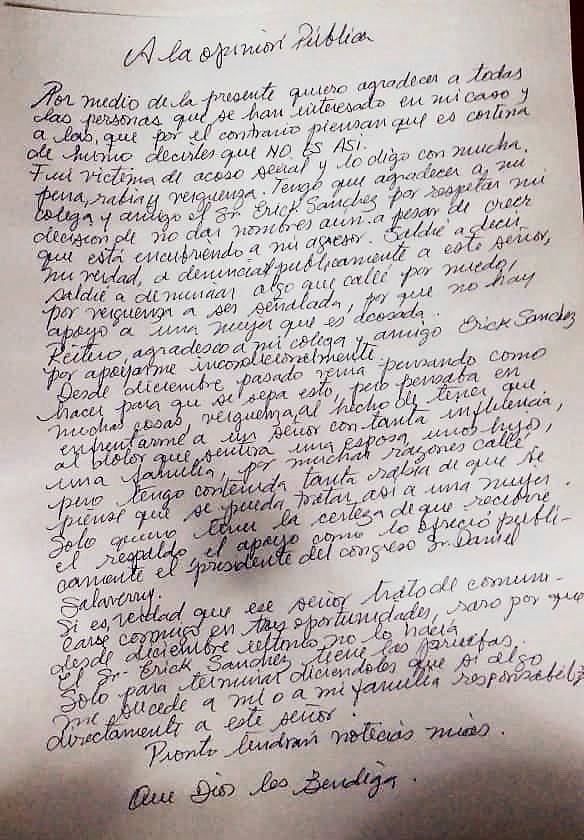 A la opinión Pública
Por medio de la presente quiero agradecer a todas
las personas que se han interesado en mi caso y
a las, que por el contrario piensan que es cortina
de humo decirles que NO ES ASI.
Fui victima de acoso sexual y lo digo con mucha
pena, rabia y verguenza. Tengo que agradecer a mi
colega y amigo el Sr. Erick Sanchez por respetar mi
decisión de no dar nombres aun a pesar de creer
que está encubriendo a mi agresor. Saldré a decir
mi verdad, a denunciar publicamente a este señor,
saldré a denunciar algo que callé por miedo,
por verguenza a ser señalada, por que no hay
apoyo a una mujer que es acosada.
Reitero, agradesco a mi colega y amigo Erick Sanchez
por apoyarme incondicionalmente.
Desde diciembre pasado venia pensando como
hacer para que se sepa esto, pero pensaba en
muchas cosas, verguenza, al hecho de tener que
enfrentarme a un señor con tanta influencia,
al dolor que sentira una esposa, unos hijos,
una familia, por muchas razones callé
pero tengo contenida tanta rabia de que se
piense que se pueda tratar asi a una mujer.
Solo quiero tener la certeza de que recibiré
el respaldo, el apoyo como lo ofreció publi-
camente el presidente del congreso Sr. Daniel
Salaverry.
Si es verdad que ese señor trató de comuni-
carse conmigo en oportunidades, raro por que
desde diciembre ultimo no lo hacia
El Sr. Erick Sanchez tiene las pruebas.
Solo para terminar diciendoles que si algo
me sucede a mi o a mi familia responsabiliz
directamente a este señor.
Pronto tendran noticias mias.
Que Dios los Bendiga.